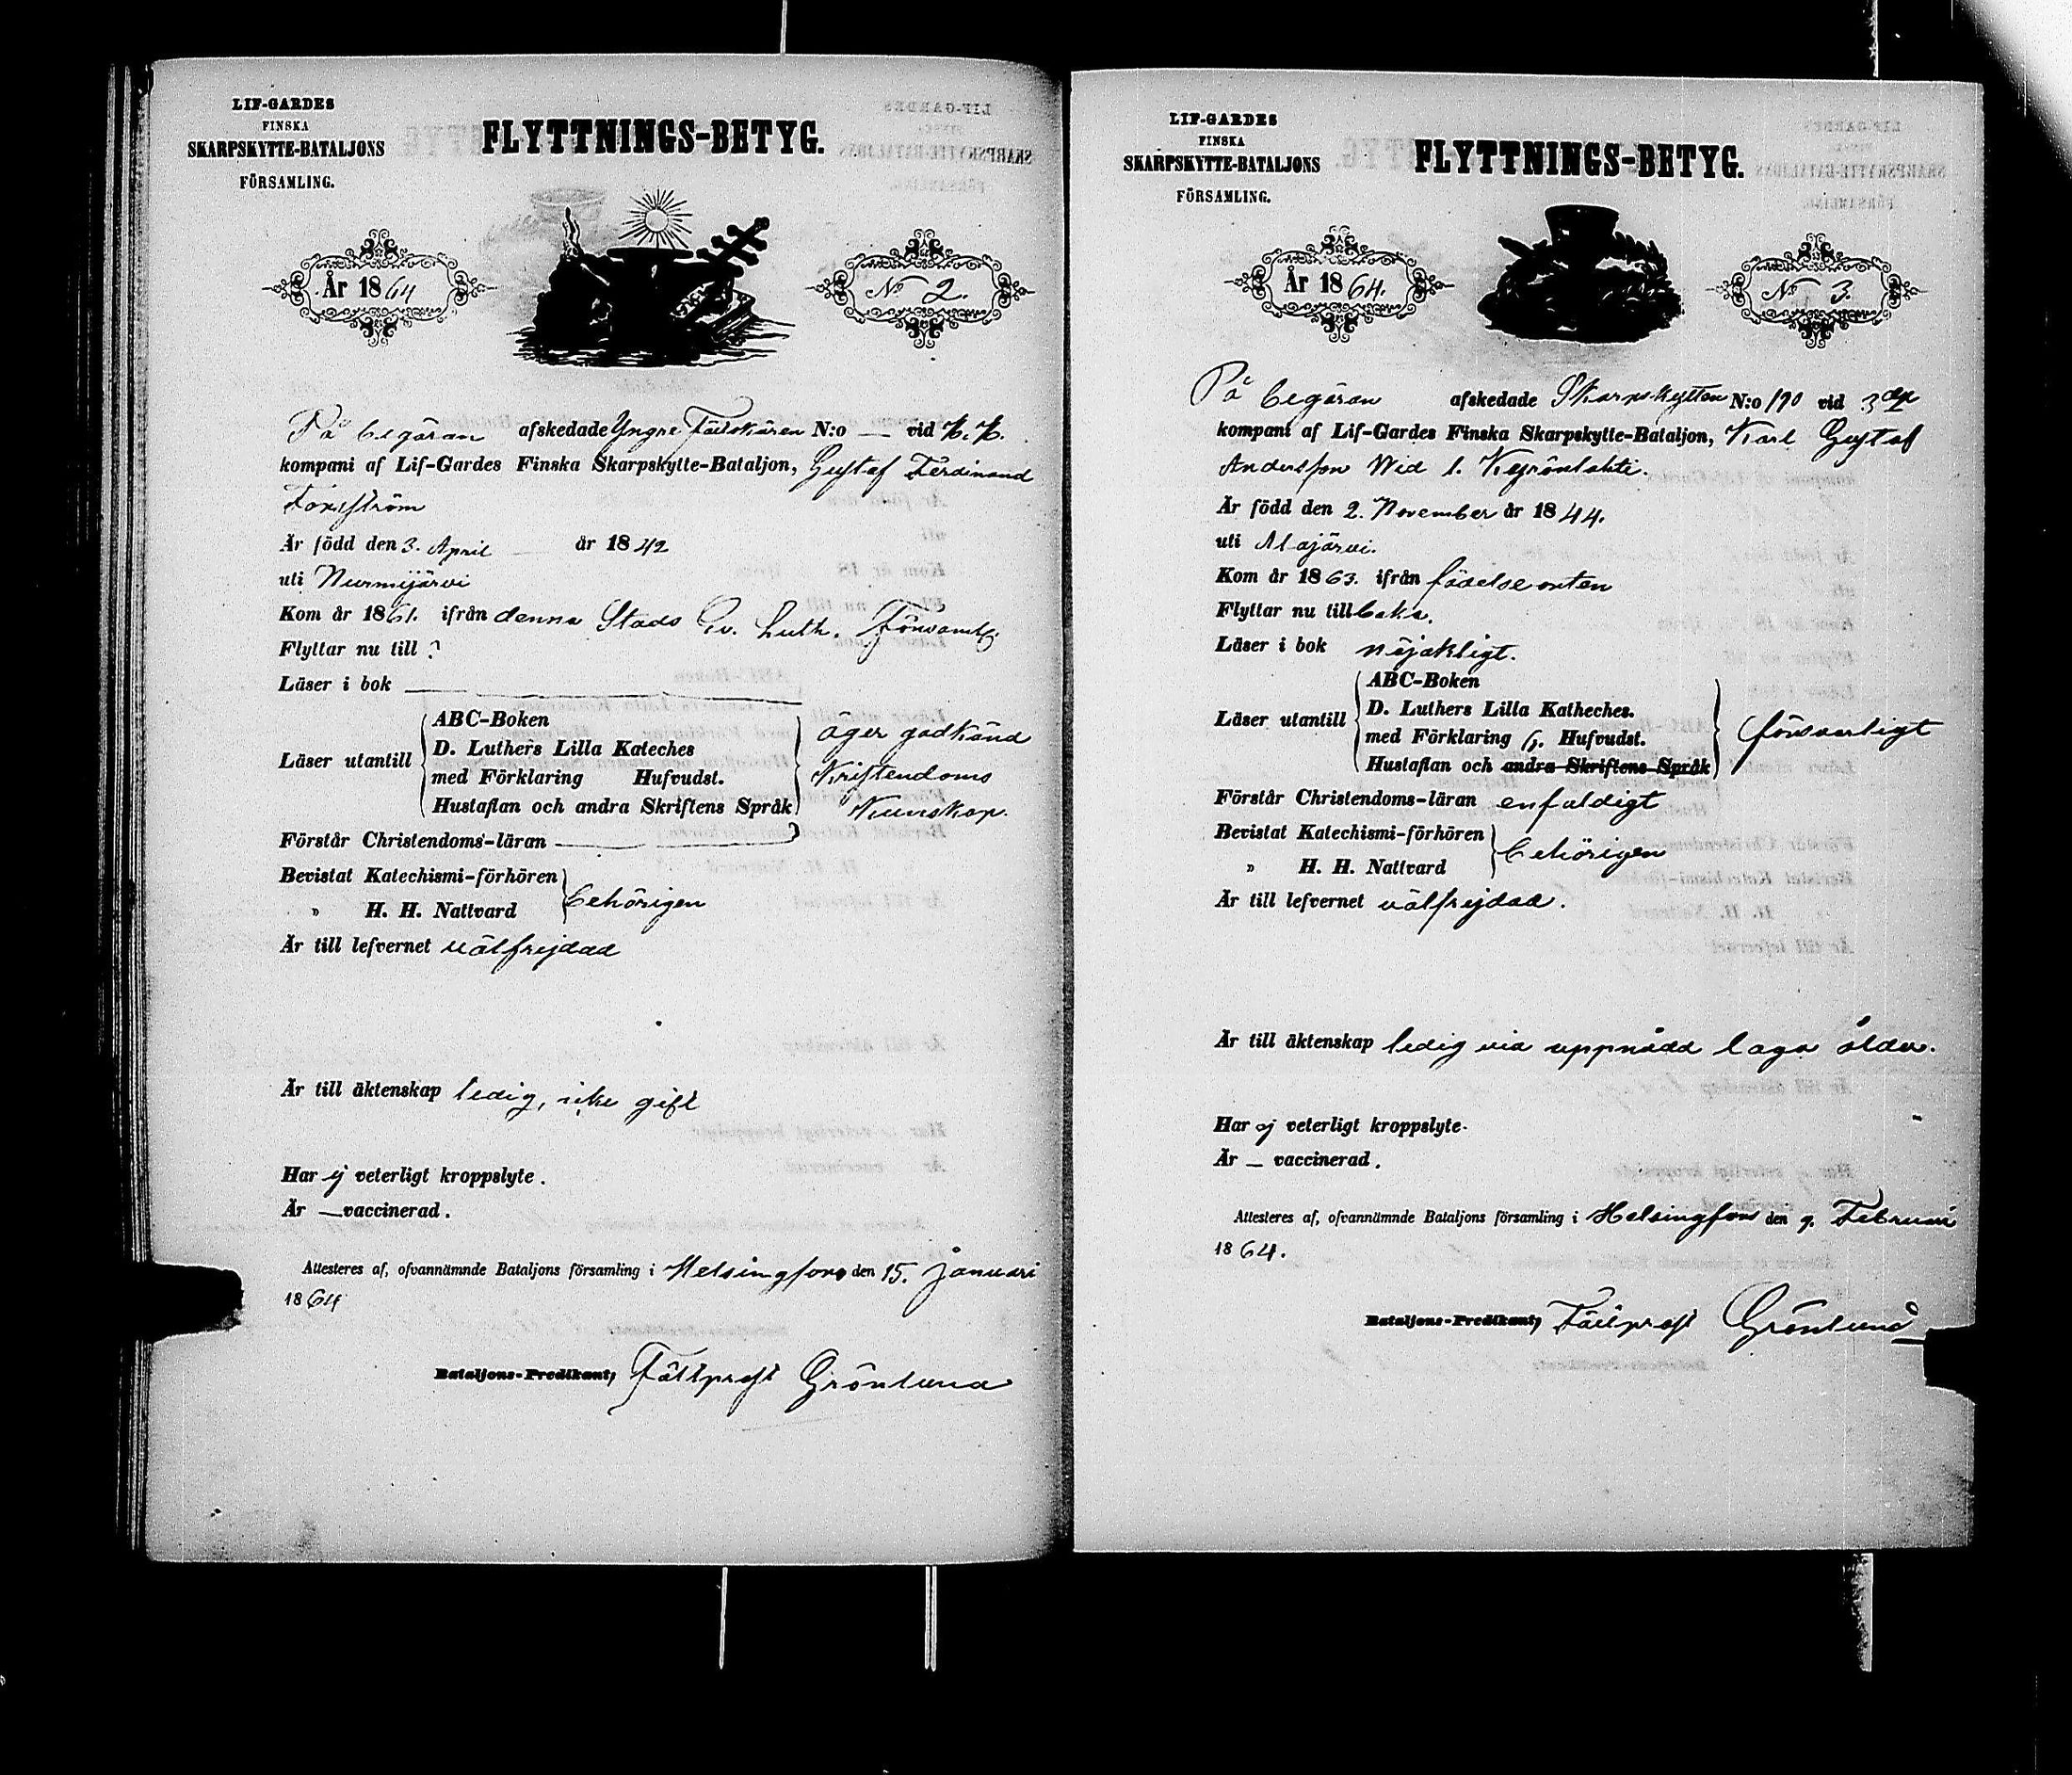 LIF-GARDES
FINSKA
SKARPSKYTTE-BATALJONS
FÖRSAMLING.
FLYTTNINGS-BETYG.
År 1864
No 2.
På begäran afskedade Yngre Fältskären N:o — vid H. H.
kompani af Lif-Gardes Finska Skarpskytte-Bataljon, Gustaf Ferdinand
Forsström
Är född den 3. April år 1842
uti Nurmijärvi
Kom år 1861. ifrån denna Stads Ev. Luth. Församl.
Flyttar nu till ?
Läser i bok
Läser utantill
ABC-Boken
D. Luthers Lilla Kateches
med Förklaring Hufvudst.
Hustaflan och andra Skriftens Språk
äger godkänd
Kristendoms
Kunskap.
Förstår Christendoms-läran
Bevistat Katechismi-förhören
„ H. H. Nattvard
behörigen
Är till lefvernet välfrejdad
Är till äktenskap ledig, icke gift
Har ej veterligt kroppslyte.
Är — vaccinerad.
Attesteres af, ofvannämnde Bataljons församling i Helsingfors den 15. Januari
1864
Bataljons-Predikant, Fältprost Grönlund
LIF-GARDES
FINSKA
SKARPSKYTTE-BATALJONS
FÖRSAMLING.
FLYTTNINGS-BETYG.
År 1864.
No 3.
På begäran afskedade Skarpskytten N:o 190 vid 3dje
kompani af Lif-Gardes Finska Skarpskytte-Bataljon, Karl Gustaf
Andersson Wid l.
Är född den 2. November år 1844.
uti Alajärvi.
Kom år 1863. ifrån födelseorten
Flyttar nu tillbaka.
Läser i bok nöjaktigt.
Läser utantill
ABC-Boken
D. Luthers Lilla Katheches.
med Förklaring 6. Hufvudst.
Hustaflan och andra Skriftens Språk
försvarligt
Förstår Christendoms-läran enfaldigt
Bevistat Katechismi-förhören
„ H. H. Nattvard
behörigen
Är till lefvernet välfrejdad.
Är till äktenskap ledig vid uppnådd laga ålder.
Har ej veterligt kroppslyte.
Är — vaccinerad.
Attesteres af, ofvannämnde Bataljons församling i Helsingfors den 9. Februari
1864.
Bataljons-Predikant, Fältprost Grönlund